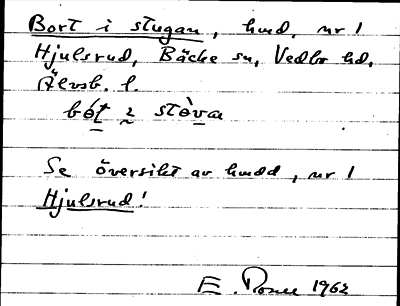 Bort i stugan, hmd, nr 1
Hjulsrud, Bäcke sn, Vedbo hd,
Älvsb. l.
bót i stòva
Se översikt av hmdd, nr 1
Hjulsrud!
E. 1962